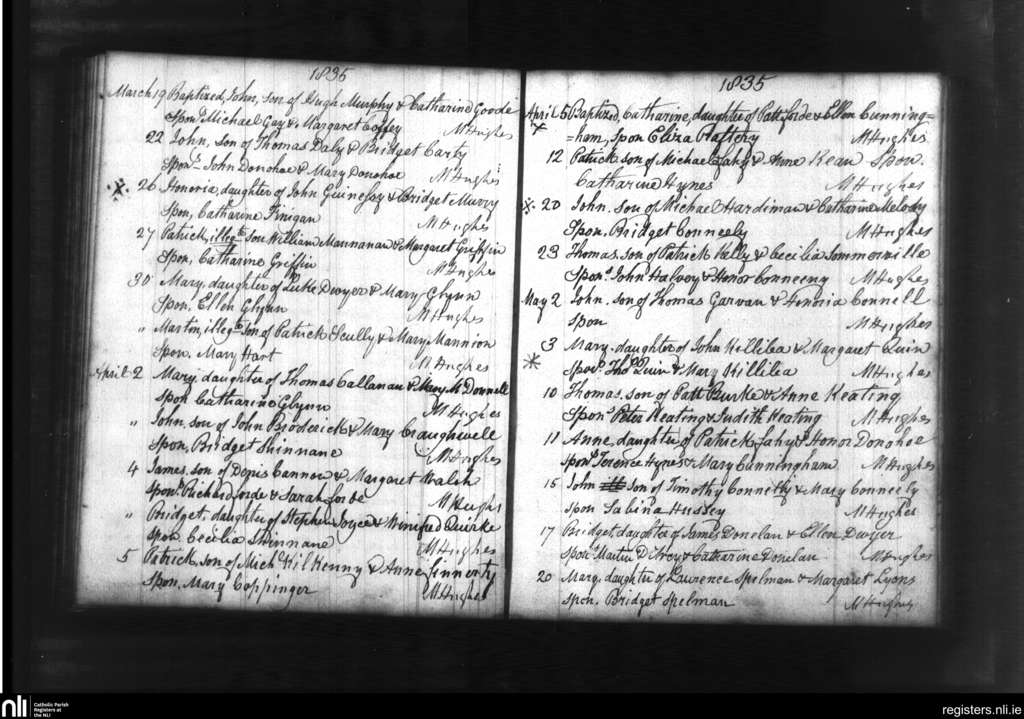 1835
March 19 Baptized, John, son of Hugh Murphy & Catharine Goode
Spons. Michael Gay & Margaret Coffey M Hughes
22 John, son of Thomas Daly & Bridget Carty
Spons. John Donohoe & Mary Donohoe M Hughes
26 Honoria, daughter of John & Bridget Murry
Spon, Catharine Finigan M Hughes
27 Patrick, illegte son William Mannanan & Margaret Griffin
Spon, Catharine Griffin M Hughes
30 Mary, daughter of Luke Dwyer & Mary Glynn
Spon, Ellen Glynn M Hughes
" Martin, illegte son of Patrick Scully & Mary Mannion
Spon. Mary Hart M Hughes
April 2 Mary, daughter of Thomas Callanan & Mary McDonnell
Spon Catharine Glynn M Hughes
" John, son of John Broderick & Mary Craughwell
Spon, Bridget Shinnane M Hughes
4 James, son of Denis Cannon & Margaret Walsh
Spons. Richard forde & Sarah forde M Hughes
" Bridget, daughter of Stephen Joyce & Winifred Quirke
Spon. Cecilia Shinnane M Hughes
5 Patrick, son of Mich Kilkenny & Anne finnerty
Spon. Mary Coppinger M Hughes
1835
April 5 Baptized, Catharine, daughter of Patt forde & Ellen Cunning=
=ham, Spon Eliza Raftery M Hughes
12 Patrick son of Michael fahy & Anne Kean Spon.
Catharine Hynes M Hughes
20 John. son of Michael Hardiman & Catharine Melody
Spon. Bridget Conneely M Hughes
23 Thomas. son of Patrick Kelly & Cecilia Sommerville
Spons. John Halvey & Honor Conneeny M Hughes
May 2 John. son of Thomas Garvan & Honoria Connell
Spon M Hughes
3 Mary. daughter of John Killilea & Margaret Quin
Spons. Thos Quin & Mary Killilea M Hughes
10 Thomas. son of Patt Burke & Anne Keating
Spons. Peter Keating & Judith Keating M Hughes
11 Anne, daughter of Patrick fahy & Honor Donohoe
Spons. Terence Hynes & Mary Cunningham M Hughes
15 John son of Timothy Conneely & Mary Conneely
Spon Sabina Hussey M Hughes
17 Bridget, daughter of James Donelan & Ellen Dwyer
Spons. Martin & Catharine Donelan M Hughes
20 Mary, daughter of Laurence Spelman & Margaret Lyons
Spon. Bridget Spelman M Hughes
nli Catholic Parish
Registers at
the NLI
registers.nli.ie